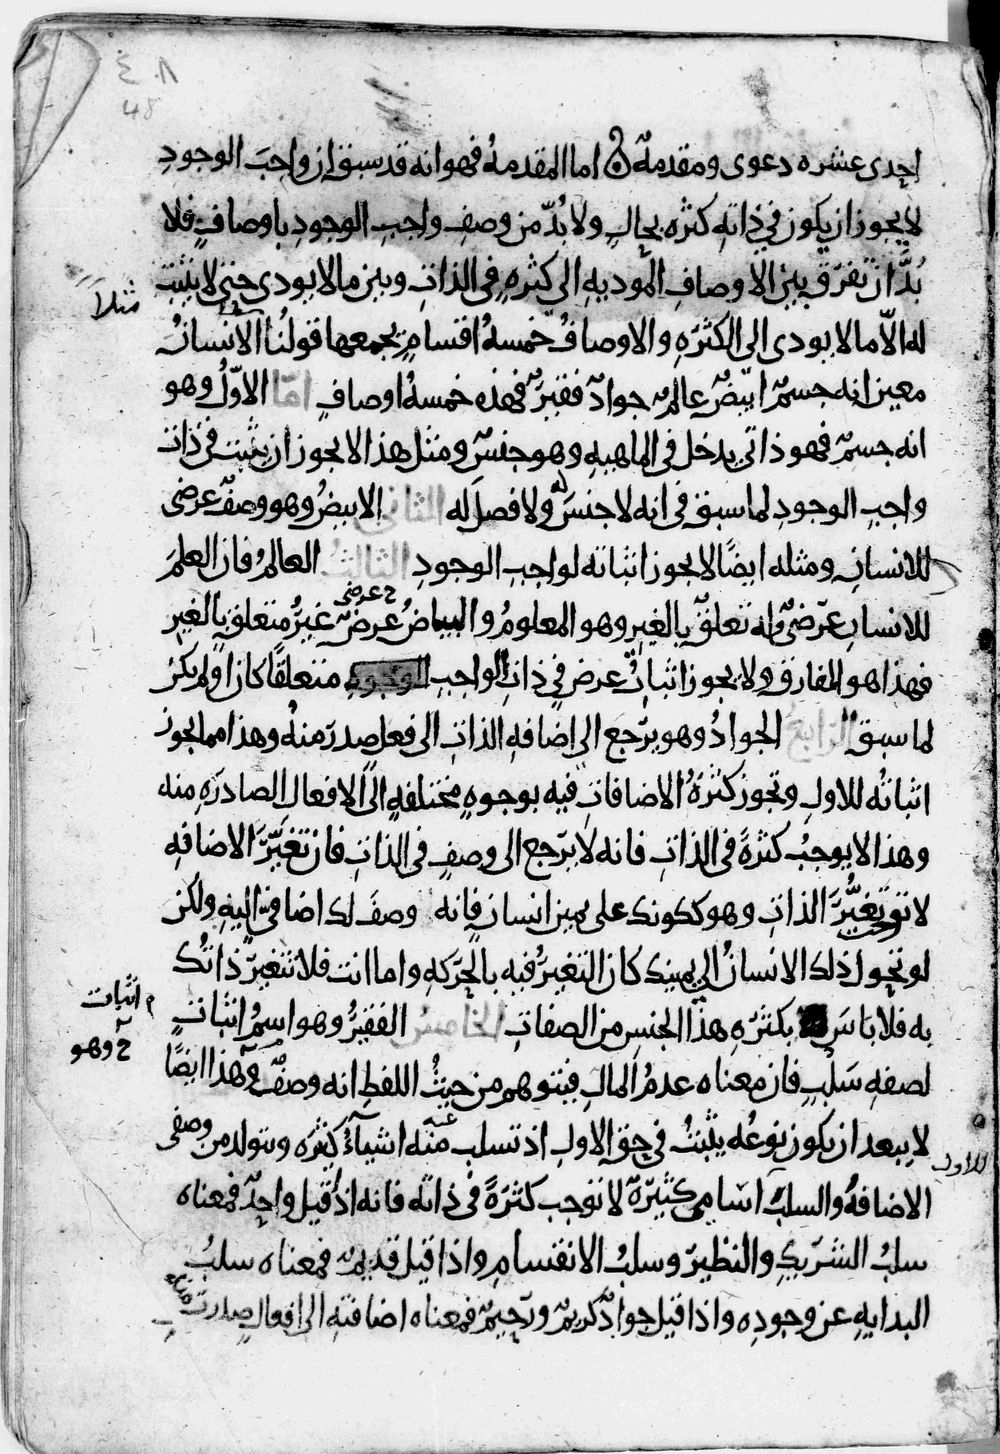 ٤٠٨
48
احدى عشره دعوى ومقدمةٌ ن اما المقدمهُ فهو انه قد سبق ان واجبَ الوجودِ
لا يجوز ان يكون في ذاتهِ كثره بحالٍ ولا بُدّ من وصفِ واجبِ الوجودِ باوصافٍ فلا
بُدَّ ان تفرّق بين الاوصافِ المُوديهِ الى كثرهِ فى الذاتِ وبين ما لا يودى حتى لا يثبت
مثلاً
له الّا ما لا يودى الى الكثرَهِ والاوصافُ خمسهُ اقسامٍ يجمعها قولُنا الانسانُ
معين انه جسمٌ ابيضٌ عالمٌ جوادٌ فقيرٌ فهذه خمسهُ اوصافٍ امّا الاوّلُ وهو
انه جسمٌ فهو ذاتي يدخل فى الماهيهِ وهو جنسٌ ومثل هذا لا يجوز ان يثبت فى ذات
واجبِ الوجودِ لما سبق فى انه لا جنسَ له ولا فصلَ له الثانى الابيضُ وهو وصفٌ عرضى
للانسانِ ومثله ايضًا لا يجوز اثباته لواجبِ الوجودِ الثالثُ العالمُ فان العلمَ
للانسانِ عرَضىٌ وله تعلقٌ بالغيرِ وهو المعلومُ والبياضُ عرضٌ ح عرضى غيرُ متعلق بالغير
فهذا هو المفارق ولا يجوز اثباتُ عرضٍ في ذاتِ الواجبِ الوجودِ متعلقًا كان او لم يكن
لما سبق الرّابعُ الجوادُ وهو يرّجع الى اضافهِ الذاتِ الى فعلٍ صدرَ منهُ وهذا مما يجوز
اثباتهُ للاولِ وتجوز كثرَهُ الاضافاتِ فيه بوجوهٍ مختلفهٍ الى الافعال الصادرَهِ منه
وهذا لا يوجبُ كثرةً فى الذاتِ فانه لا يرّجع الى وصفٍ فى الذاتِ فان تغيّرَ الاضافهِ
لا توجب تغيُّرَ الذاتِ وهو ككونك على يمين انسانٍ فانه وصفٌ لك اضافىٌّ اليهِ ولكن
لو تحول ذلك الانسانُ الى يمينك كان التغيرُ فيه بالحرَكهِ واما انت فلا تتغيرّ ذاتُك
به فلا باسَ بكثرَهِ هذا الجنسِ من الصفاتِ الخامسُ الفقيرُ وهو اسمُ اثباتٍ
اثبات
ح وهو
لصفهِ سَلبٍ فان معناه عدمُ المالِ فيتوهم من حيثُ اللفظِ انه وصفٌ وهذا ايضًا
لا يبعد ان يكون نوعُه يثبتُ في حق الاولِ اذ تسلب عنه منه اشياءٌ كثيرَه ويتولد من وصفى
للاول
الاضافهُ والسلبُ اسَامى كثيرَةٌ لا توجب كثرَةً فى ذاته فانه اذا قيل واحدٌ فمعناه
سلبُ الشرَيكِ والنظيرِ وسلبُ الانقسامِ واذا قيل قديمٌ فمعناه سلبُ
البدايهِ عن وجودِه واذا قيل جوادٌ كريمٌ ورَحيمٌ فمعناه اضافتهِ الى افعالٍ صدرت منه